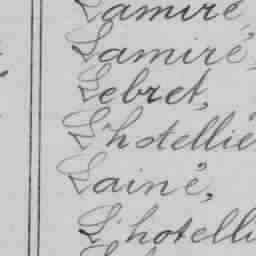 Lamiré,
Lamiré,
Lebret,
L'hotellie
Lainé,
L'hotelli